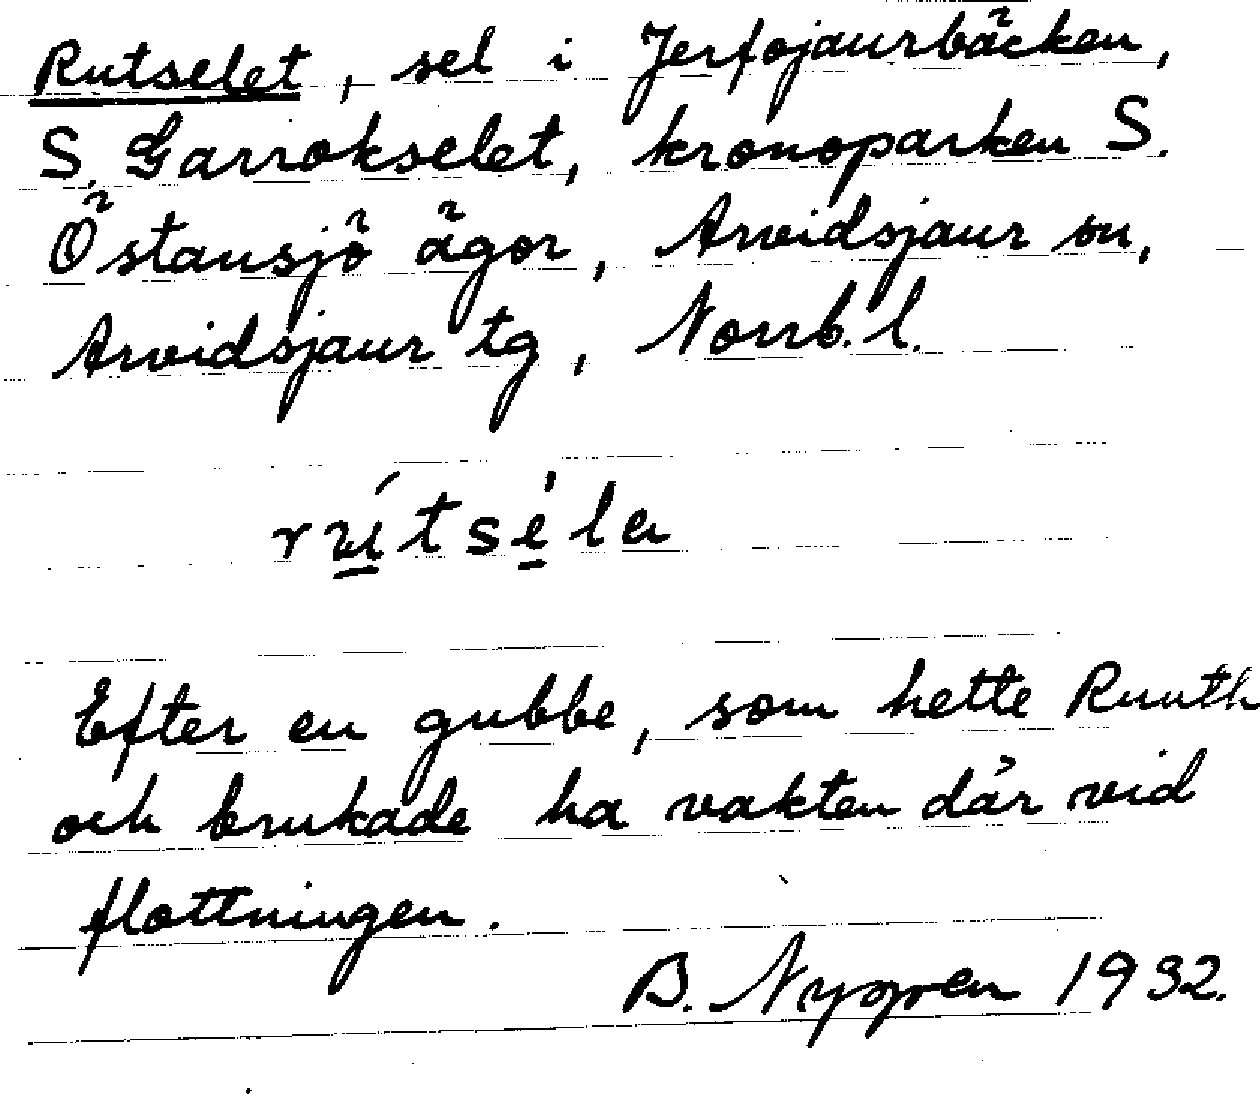 Rutselet, sel i Jerfojaurbäcken,
S. Garrokselet, kronoparken S.
Östansjö ägor, Arvidsjaur sn,
Arvidsjaur tg, Norrb. l.
rútsèla
Efter en gubbe, som hette Ruuth
och brukade ha vakten där vid
flottningen.
B. Nygren 1932.